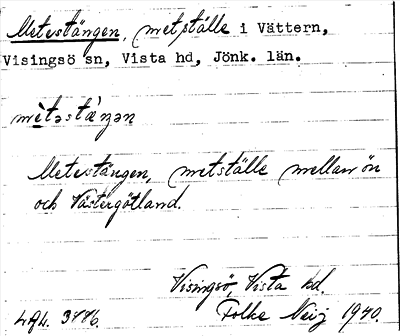 Metestången, metställe i Vättern,
Visingsö sn, Vista hd, Jönk. län.
mètəstæ'ŋən
Metestången, metställe mellan ön
och Västergötland.
Visingsö, Vista hd.
Folke Neij 1940.